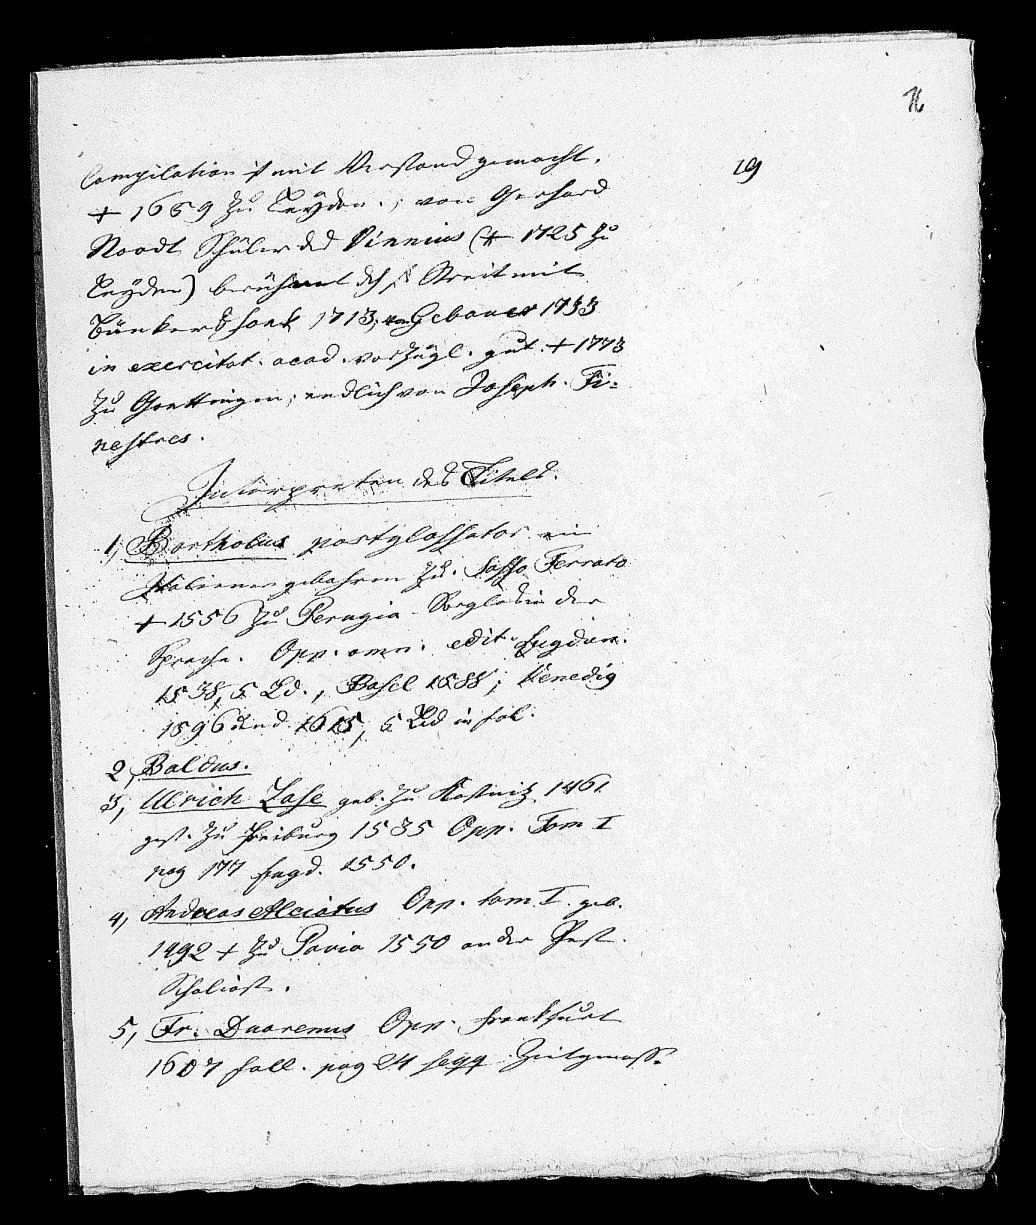 76
19
Compilation ist mit Verstand gemacht.
+ 1659 zu Leyden.; von Gerhard
Noodt Schüler des Vinnius (+ 1725 zu
Leyden) berühmt dch s. Streit mit
Bünkershoek 1713, von Gebauer 1733
in exercitat. acad. vorzügl. gut. + 1773
zu Goettingen; endlich von Joseph. Fi-
nestres.
Interpreten des Titels.
1, Bartholus postglossator. ein
Italiener gebohren zu. Sasso Ferrato
+ 1556 zu Perugia. Sorglos in der
Sprache. Opp. omn. edit. Lugdun.
1538, 5 Bd., Basel 1588; Venedig
1596 und 1615, 5 Bd in fol.
2, Baldus.
3, Ulrich Zase geb. zu Kostnitz 1461
gest. zu Freiburg 1535 Opp. Tom I
pag 177 Lugd. 1550.
4, Andreas Alciatus Opp. tom. I. geb.
1492 + zu Pavia 1550 an der Pest.
Scholiast.
5, Fr. Duarenus Opp. Frankfurt
1607 foll. pag 24 seqq